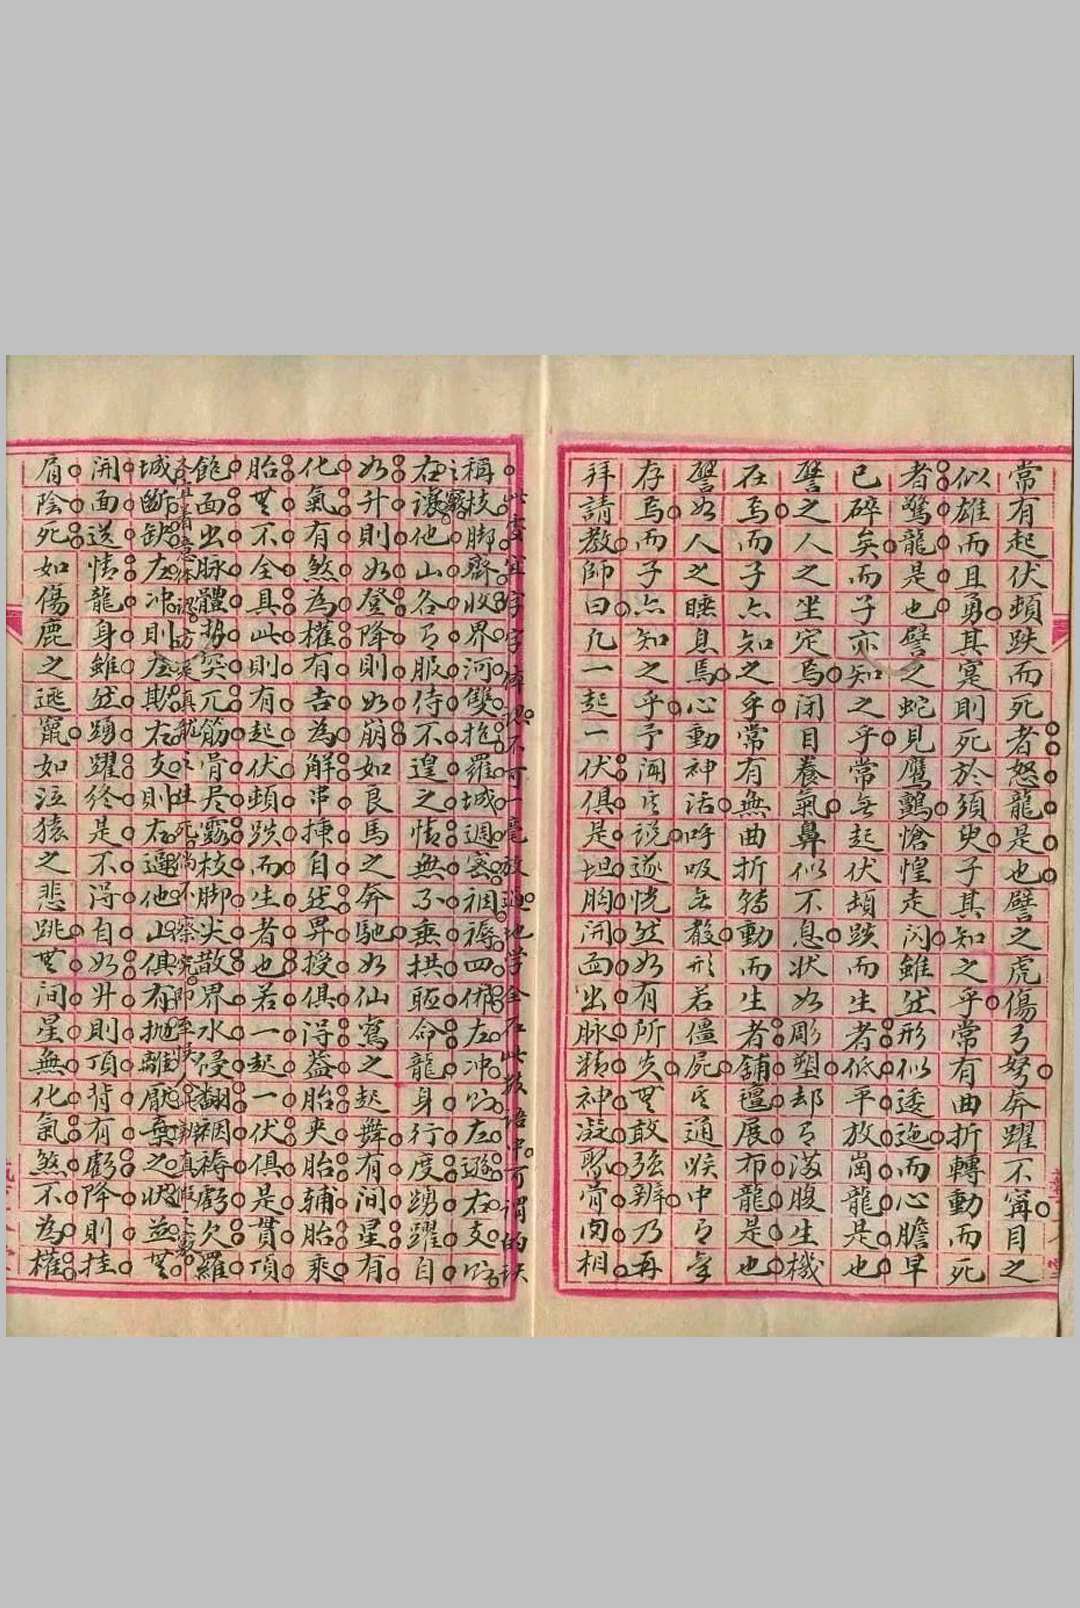 常有起伏頓跌而死者怒龍是也譬之虎傷弓弩奔躍不寧目之
似雄而且勇其寔則死於須臾子其知之乎常有曲折轉動而死
者驚龍是也譬之蛇見鷹鸇愴惶走閃雖然形似逶迤而心膽早
已碎矣而子亦知之乎常無起伏頓跌而生者低平放崗龍是也
譬之人之坐定焉閉目養氣鼻似不息狀如彫塑却有滿腹生機
在焉而子亦知之乎常有無曲折轉動而生者鋪氊展布龍是也
譬如人之睡息焉心動神活呼吸無殽形若僵屍其通喉中有氣
存焉而子亦知之乎予聞其說遂恍然如有所失無敢強辨乃再
拜請教師曰凡一起一伏俱是坦胸開面出脉精神凝聚骨肉相
稱枝脚齊收界河雙抱羅城週密裀褥四備左冲乃左遜右支乃
右讓他山各有服侍不遑之情無不垂拱聽命龍身行度踴躍自
如升則如登降則如崩如良馬之奔馳如仙鸞之起舞有間星有
化氣有煞為權有吉為解串揀自然昇授俱得益胎夾胎輔胎乘
胎無不全具此則有起伏頓跌而生者也若一起一伏俱是貫頂
飽面出脉體勢突兀筋骨尽露枝脚尖散界水侵翻裀褥虧欠羅
城斷缺左冲則左欺右支則右逼他山俱有拋離厭棄之狀並無
開面送情龍身雖然踴躍終是不得自如升則頂背有虧降則挂
屑陰死如傷鹿之逃竄如泣猿之悲跳無間星無化氣煞不為權